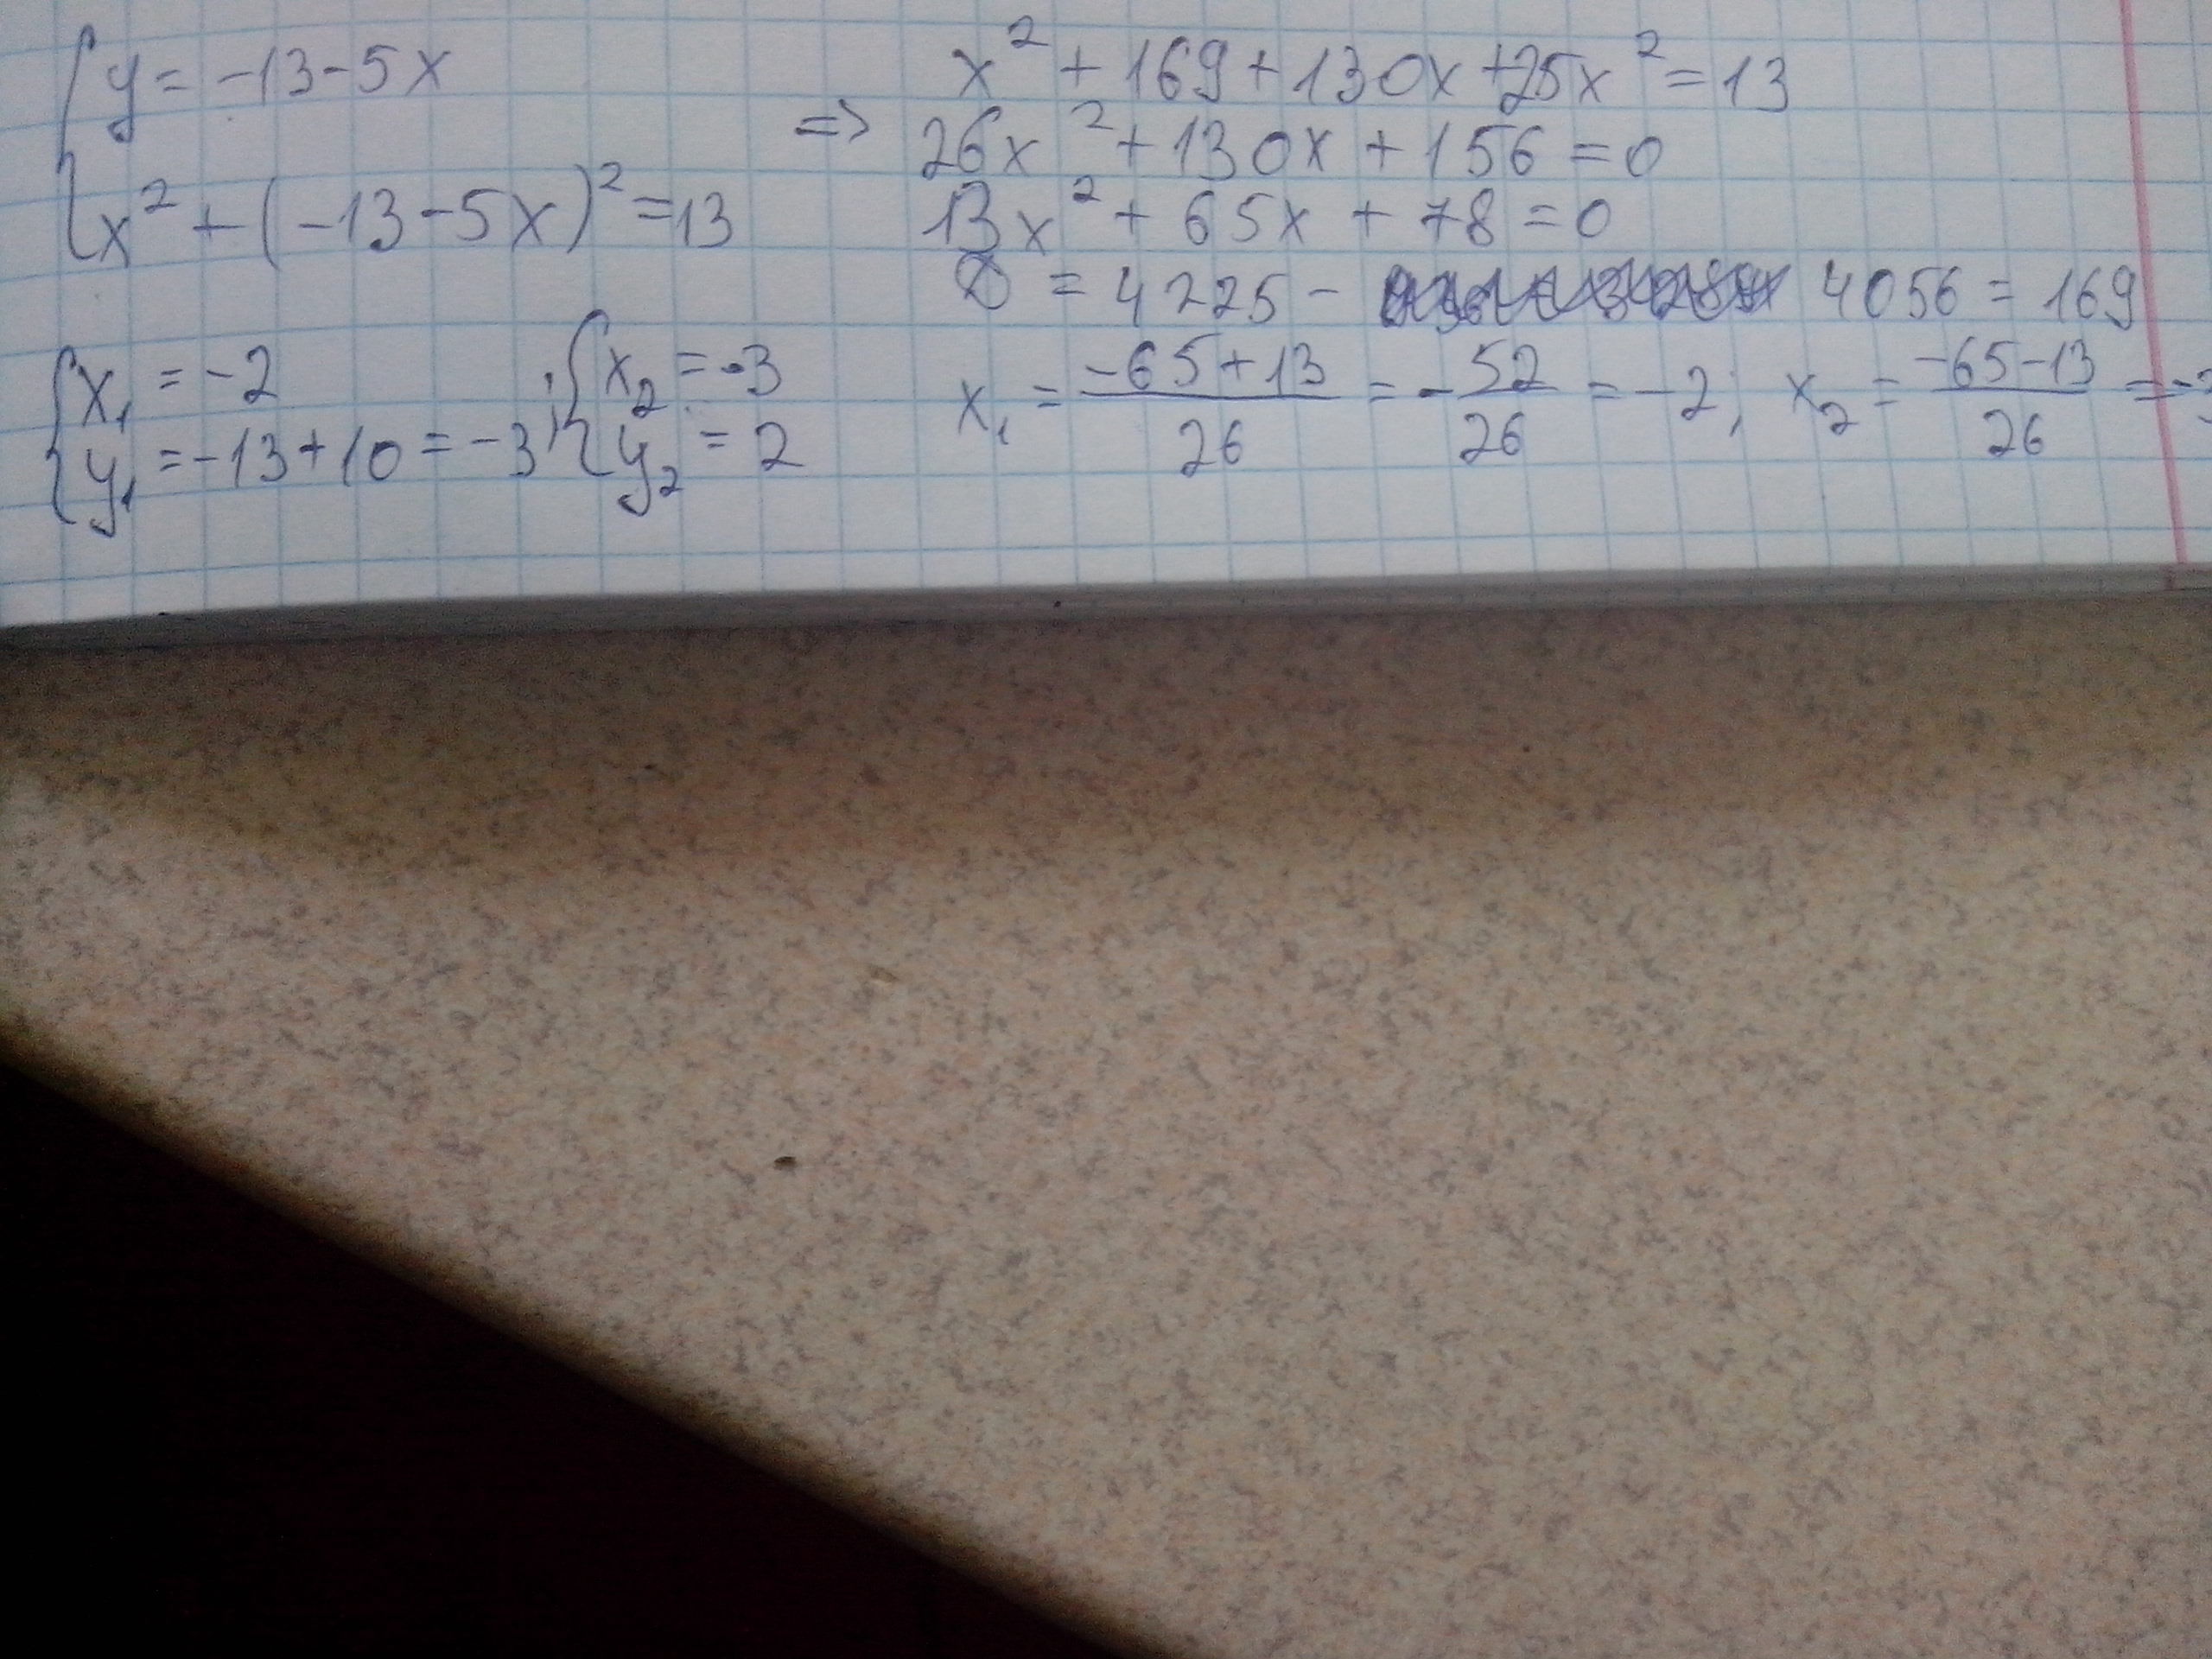 y = -13-5x
x² + (-13-5x)² = 13
=> x² + 169 + 130x + 25x² = 13
26x² + 130x + 156 = 0
13x² + 65x + 78 = 0
= 4225 - 4056 = 169
x₁ = (-65+13)/26 = -52/26 = -2; x₂ = (-65-13)/26 = -3
x₁ = -2
y₁ = -13+10 = -3;
x₂ = -3
y₂ = 2